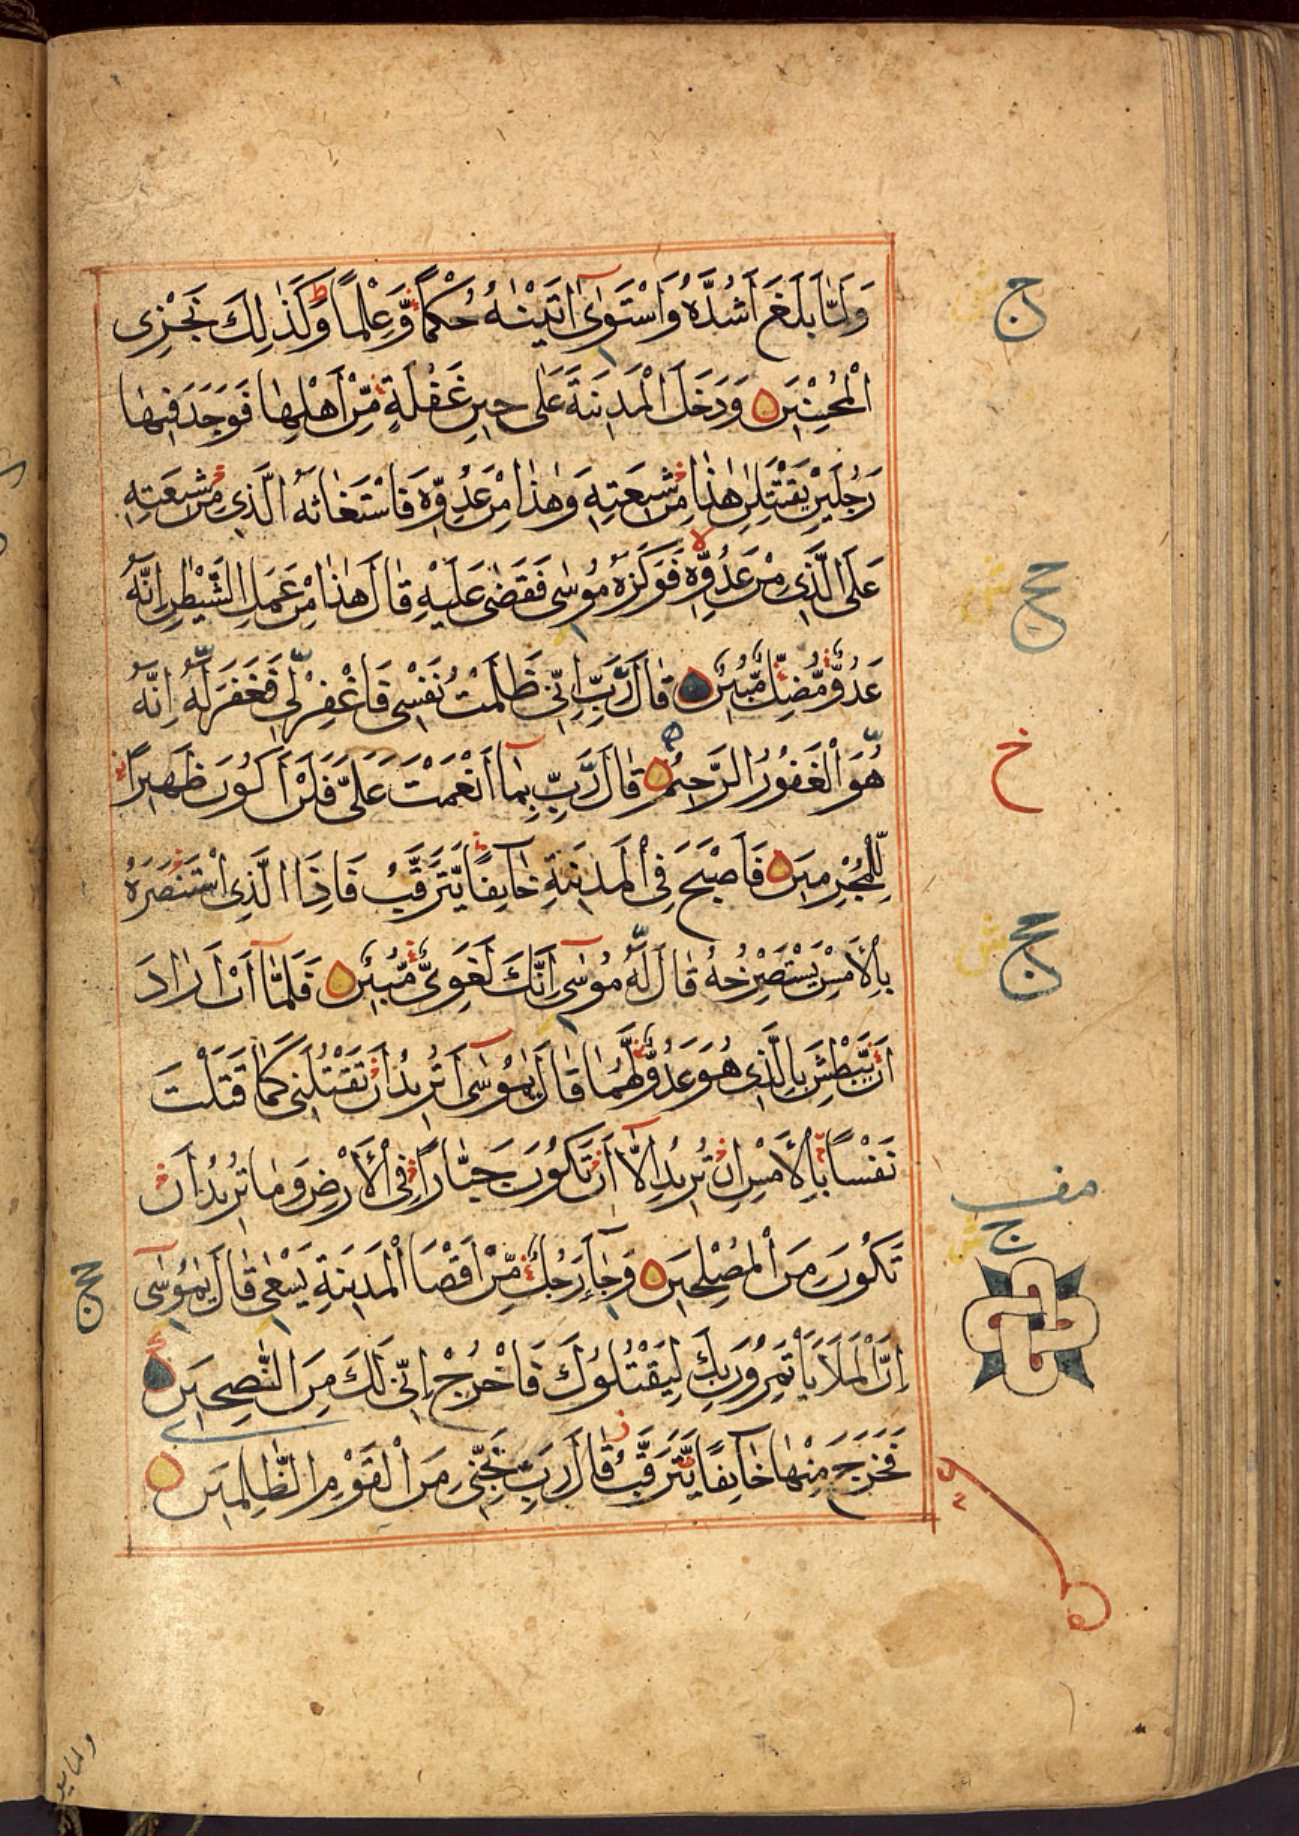 وَلَمَّا بَلَغَ أَشُدَّهُ وَاسْتَوٰىٓ اٰتَيْنٰهُ حُكْمًا وَّعِلْمًا وَكَذٰلِكَ نَجْزِى
الْمُحْسِنِيْنَ وَدَخَلَ الْمَدِيْنَةَ عَلٰى حِيْنِ غَفْلَةٍ مِّنْ اَهْلِهَا فَوَجَدَ فِيْهَا
رَجُلَيْنِ يَقْتَتِلٰنِ هٰذَا مِنْ شِيْعَتِهٖ وَهٰذَا مِنْ عَدُوِّهٖ فَاسْتَغَاثَهُ الَّذِى مِنْ شِيْعَتِهٖ
عَلَى الَّذِى مِنْ عَدُوِّهٖ فَوَكَزَهُ مُوْسٰى فَقَضٰى عَلَيْهِ قَالَ هٰذَا مِنْ عَمَلِ الشَّيْطٰنِ اِنَّهُ
عَدُوٌّ مُّضِلٌّ مُّبِيْنٌ قَالَ رَبِّ اِنِّى ظَلَمْتُ نَفْسِى فَاغْفِرْ لِى فَغَفَرَ لَهُ اِنَّهُ
هُوَ الْغَفُوْرُ الرَّحِيْمُ قَالَ رَبِّ بِمَا اَنْعَمْتَ عَلَىَّ فَلَنْ اَكُوْنَ ظَهِيْرًا
لِّلْمُجْرِمِيْنَ فَاَصْبَحَ فِى الْمَدِيْنَةِ خَآئِفًا يَّتَرَقَّبُ فَاِذَا الَّذِى اسْتَنْصَرَهُ
بِالْاَمْسِ يَسْتَصْرِخُهُ قَالَ لَهُ مُوْسٰىٓ اِنَّكَ لَغَوِىٌّ مُّبِيْنٌ فَلَمَّآ اَنْ اَرَادَ
اَنْ يَّبْطِشَ بِالَّذِى هُوَ عَدُوٌّ لَّهُمَا قَالَ يٰمُوْسٰىٓ اَتُرِيْدُ اَنْ تَقْتُلَنِى كَمَا قَتَلْتَ
نَفْسًا بِالْاَمْسِ اِنْ تُرِيْدُ اِلَّآ اَنْ تَكُوْنَ جَبَّارًا فِى الْاَرْضِ وَمَا تُرِيْدُ اَنْ
تَكُوْنَ مِنَ الْمُصْلِحِيْنَ وَجَآءَ رَجُلٌ مِّنْ اَقْصَا الْمَدِيْنَةِ يَسْعٰى قَالَ يٰمُوْسٰىٓ
اِنَّ الْمَلَاَ يَاْتَمِرُوْنَ بِكَ لِيَقْتُلُوْكَ فَاخْرُجْ اِنِّى لَكَ مِنَ النّٰصِحِيْنَ
فَخَرَجَ مِنْهَا خَآئِفًا يَّتَرَقَّبُ قَالَ رَبِّ نَجِّنِى مِنَ الْقَوْمِ الظّٰلِمِيْنَ